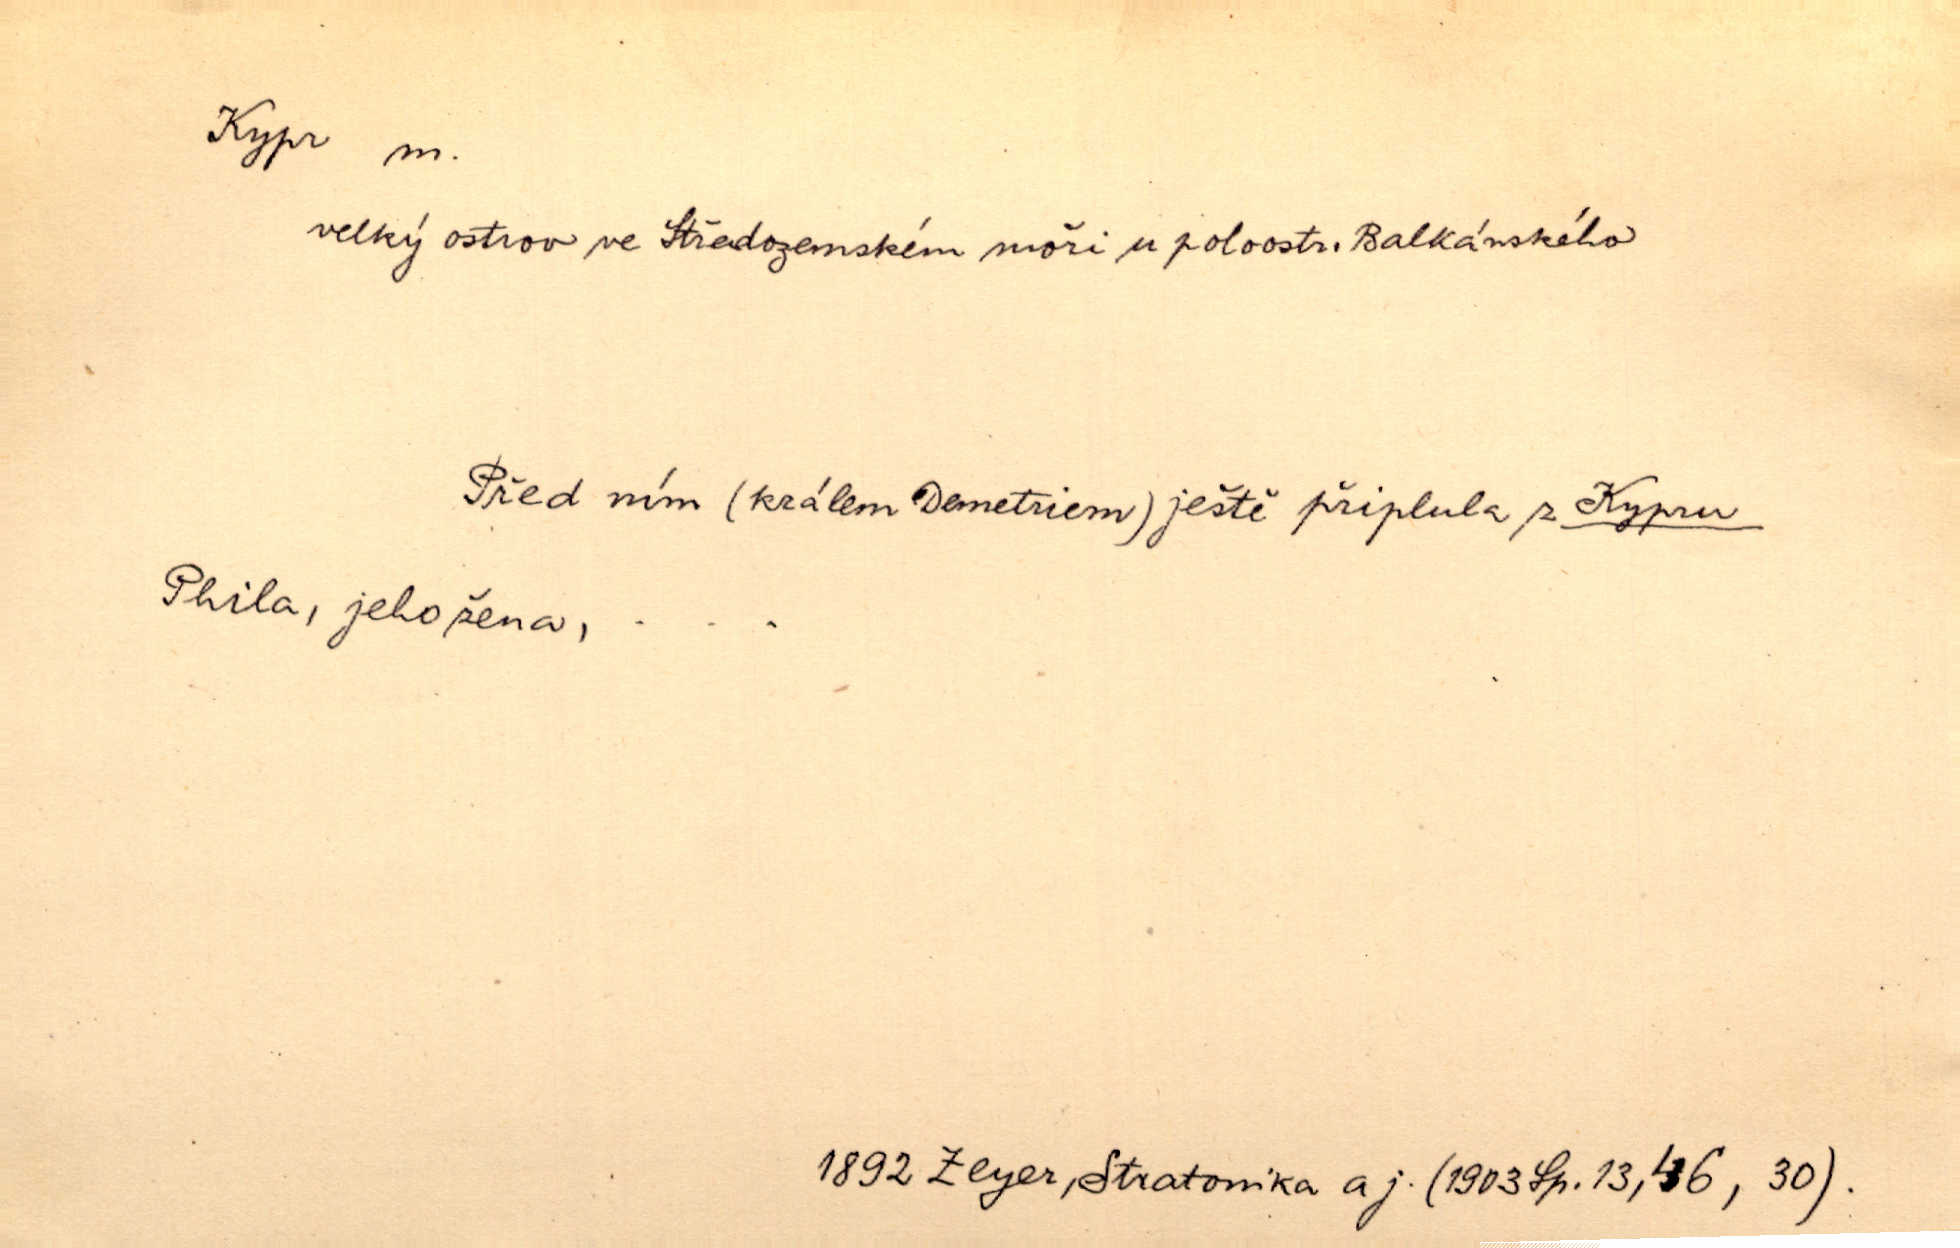 Kypr m.
velký ostrov ve Středozemském moři u poloostr. Balkánského
Před ním (králem Demetriem) ještě připlula z Kypru
Phila, jeho žena, . . .
1892 Zeyer, Stratonika a j. (1903 Sp. 13, 46, 30).